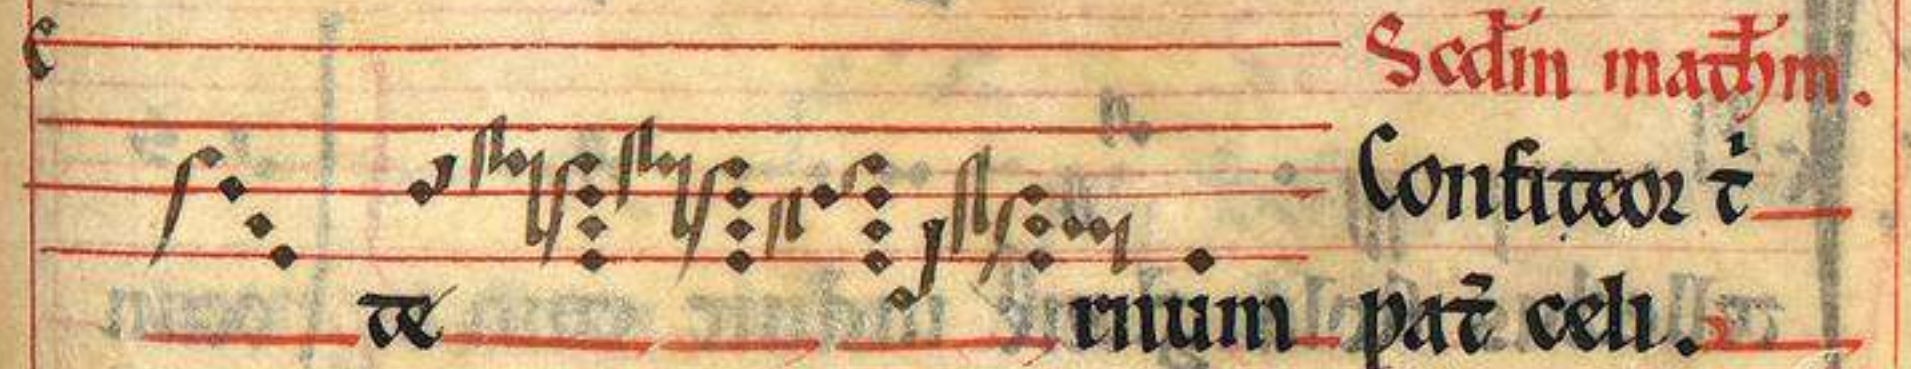 c
Scdm̄ math̄m.
Confiteor tⁱ
te rnum pat̄ celi.